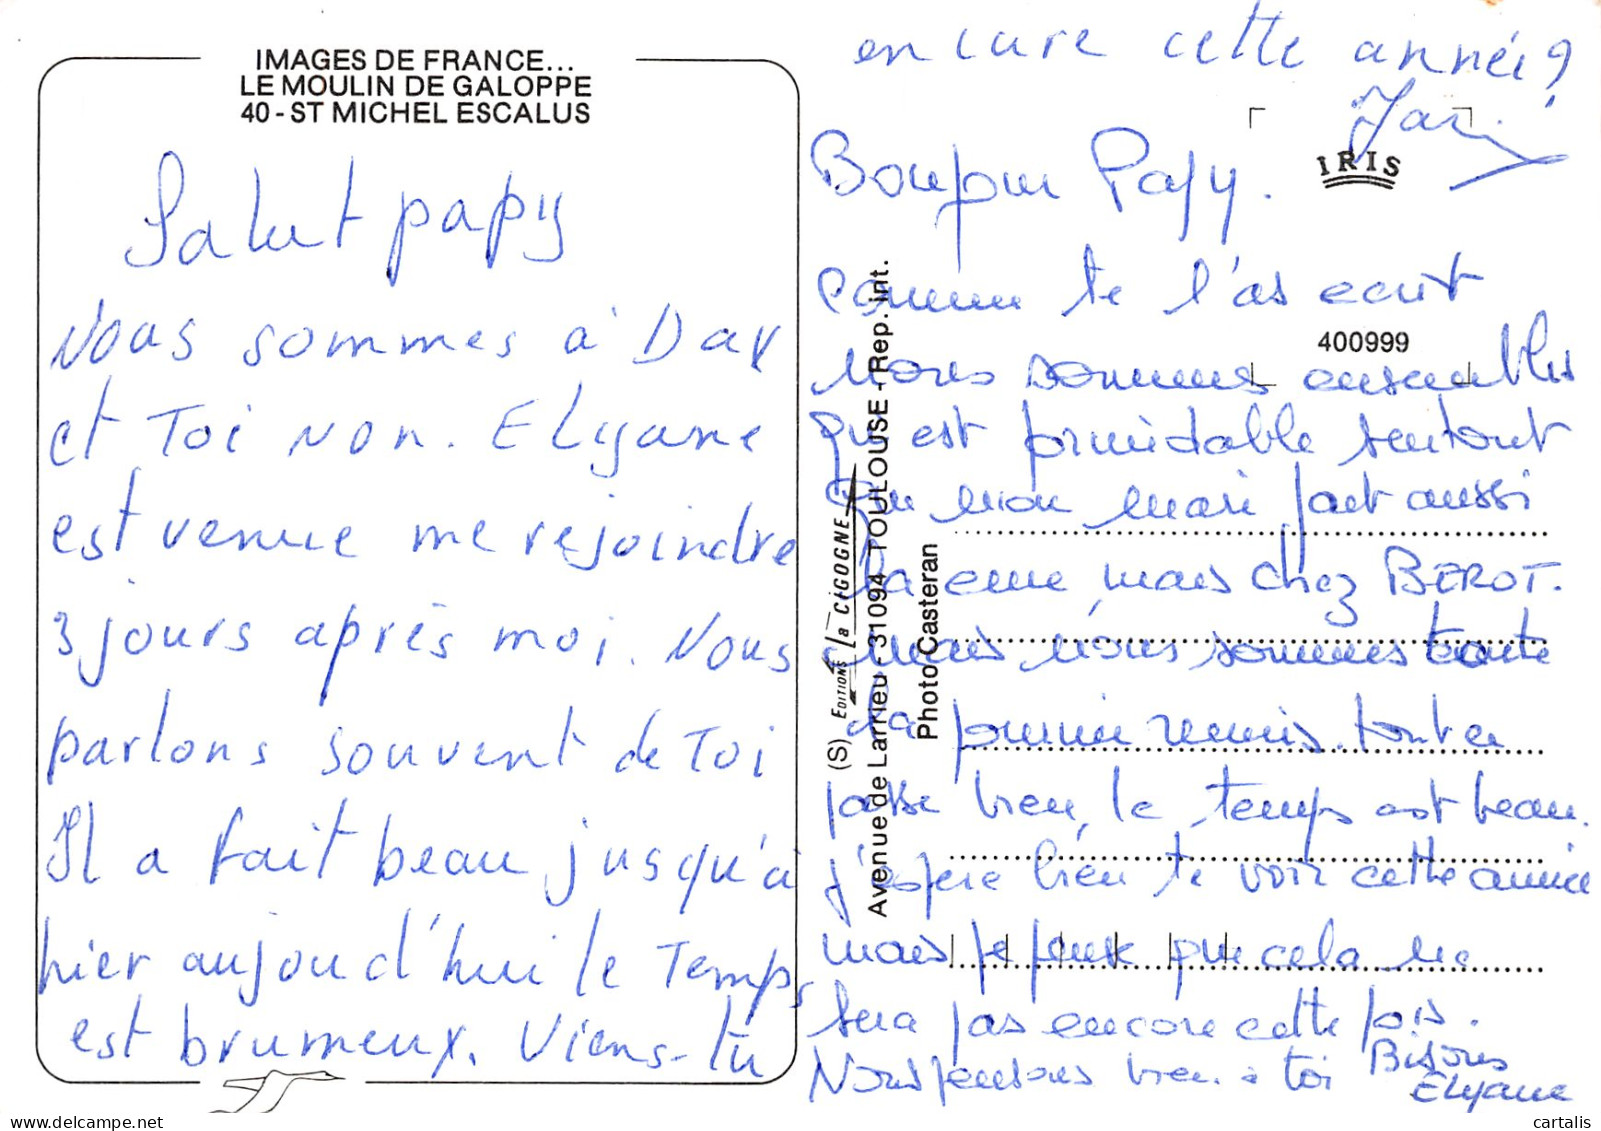 IMAGES DE FRANCE...
LE MOULIN DE GALOPPE
40 - ST MICHEL ESCALUS
Salut papy
Nous sommes à Dax
et Toi non. Elyane
est venue me rejoindre
3 jours après moi. Nous
parlons souvent de Toi
Il a fait beau jusqu'à
hier aujourd'hui le Temps
est brumeux. Viens-tu
encore cette année?
IRIS
400999
Bonjour Papy.
comme te l'as ecrit
nous sommes ensembles
qui est formidable surtout
que mon mari fait aussi
la cure, mais chez BEROT.
mais nous sommes toute
la journée reunis. tout ce
passe bien, le temps est beau.
j'espere bien te voir cette année
mais je peux que cela ne
sera pas encore cette fois.
Nous pensons bien à toi
Bisous
Elyane
(S) EDITIONS La CIGOGNE
Avenue de Larrieu - 31094 TOULOUSE - Rep. int.
Photo Casteran
cartalis
www.delcampe.net